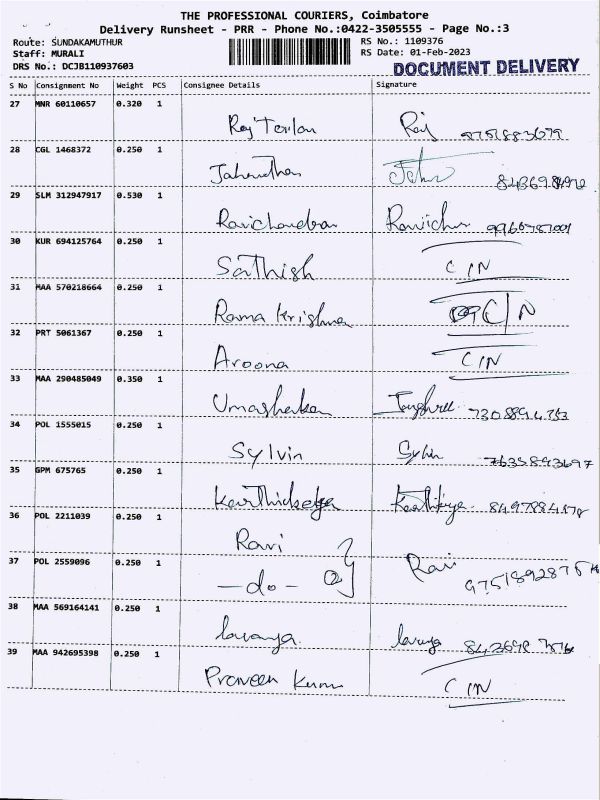 THE PROFESSIONAL COURIERS, Coimbatore
Delivery Runsheet - PRR - Phone No.:0422-3505555 - Page No.:3
Route: SUNDAKAMUTHUR
Staff: MURALI
DRS No.: DCJB110937603
RS No.: 1109376
RS Date: 01-Feb-2023
DOCUMENT DELIVERY
S No Consignment No Weight PCS Consignee Details Signature
27 MNR 60110657 0.320 1
Raj
28 CGL 1468372 0.250 1
29 SLM 312947917 0.530 1
Ravichandran
30 KUR 694125764 0.250 1
Sathish C/N
31 MAA 570218664 0.250 1
Rama Krishna C/N
32 PRT 5061367 0.250 1
Aroona C/N
33 MAA 290485049 0.350 1
34 POL 1555015 0.250 1
Sylvin
35 GPM 675765 0.250 1
36 POL 2211039 0.250 1
Ravi
37 POL 2559096 0.250 1
-do- Ravi
38 MAA 569164141 0.250 1
lavanya
39 MAA 942695398 0.250 1
Praveen Kumar C/N